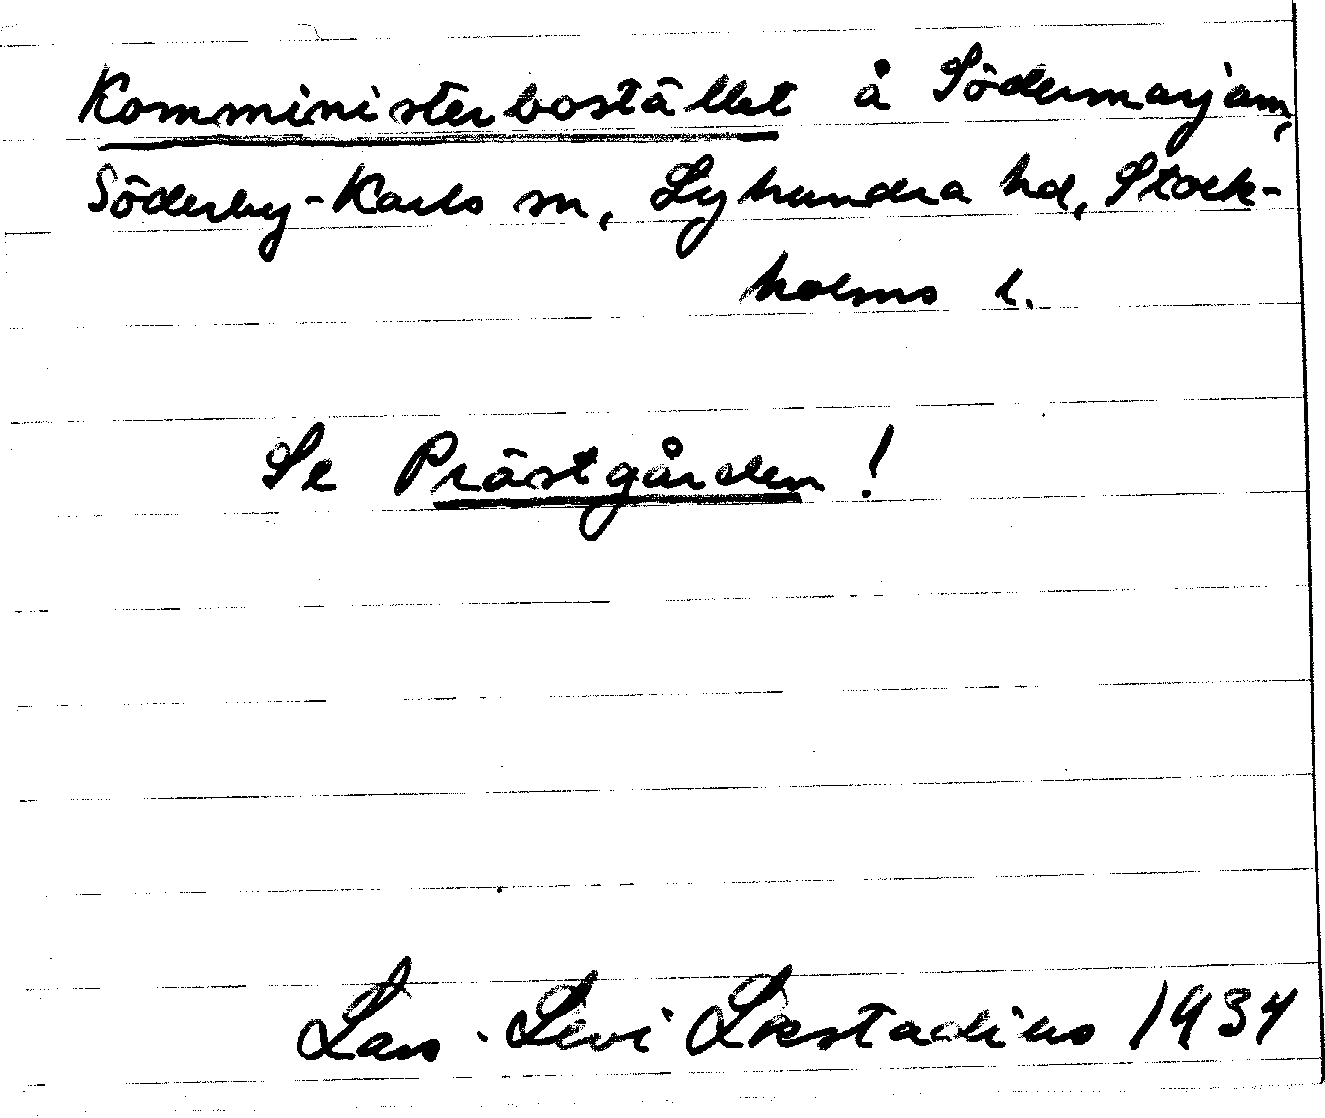 Komministerbostället å Södermarjum,
Söderby-Karls sn, Lyhundra hd, Stock-
holms l.
Se Prästgården!
Lars-Levi Læstadius 1934